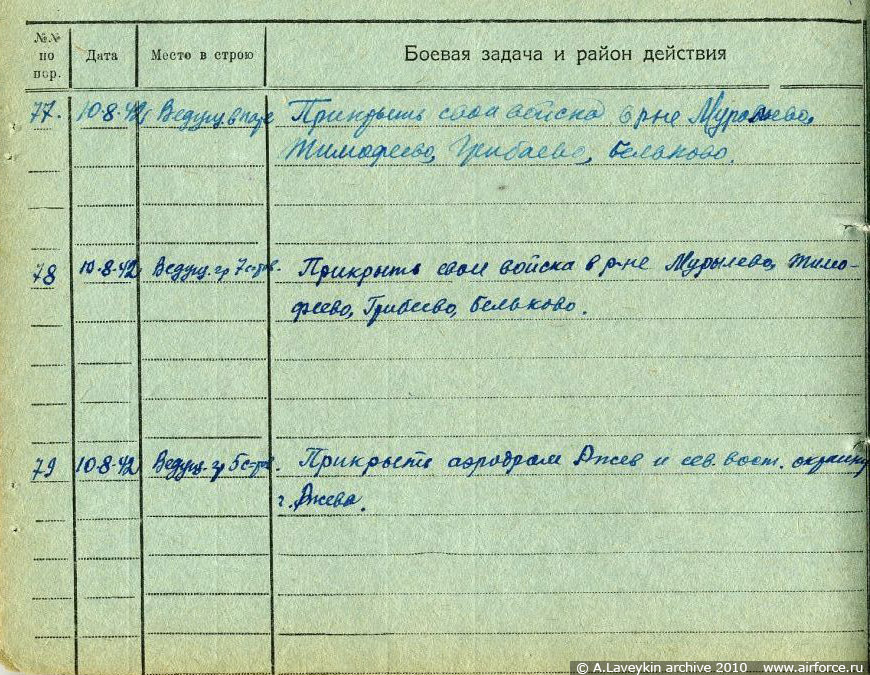 №№ по пор.
Дата
Место в строю
Боевая задача и район действия
77.
10-8-42г
Ведущ в паре
Прикрыть свои войска в р-не Мурылево,
Тимофеево, Грибаево, Бельково.
78
10-8-42
Ведущ. гр 7 с-тов.
Прикрыть свои войска в р-не Мурылево, Тимо-
феево, Грибеево, Бельково.
79
10-8-42
Ведущ. гр 5 с-тов.
Прикрыть аэродром Ржев и сев. вост. окраину
г. Ржева.
© A.Laveykin archive 2010 www.airforce.ru